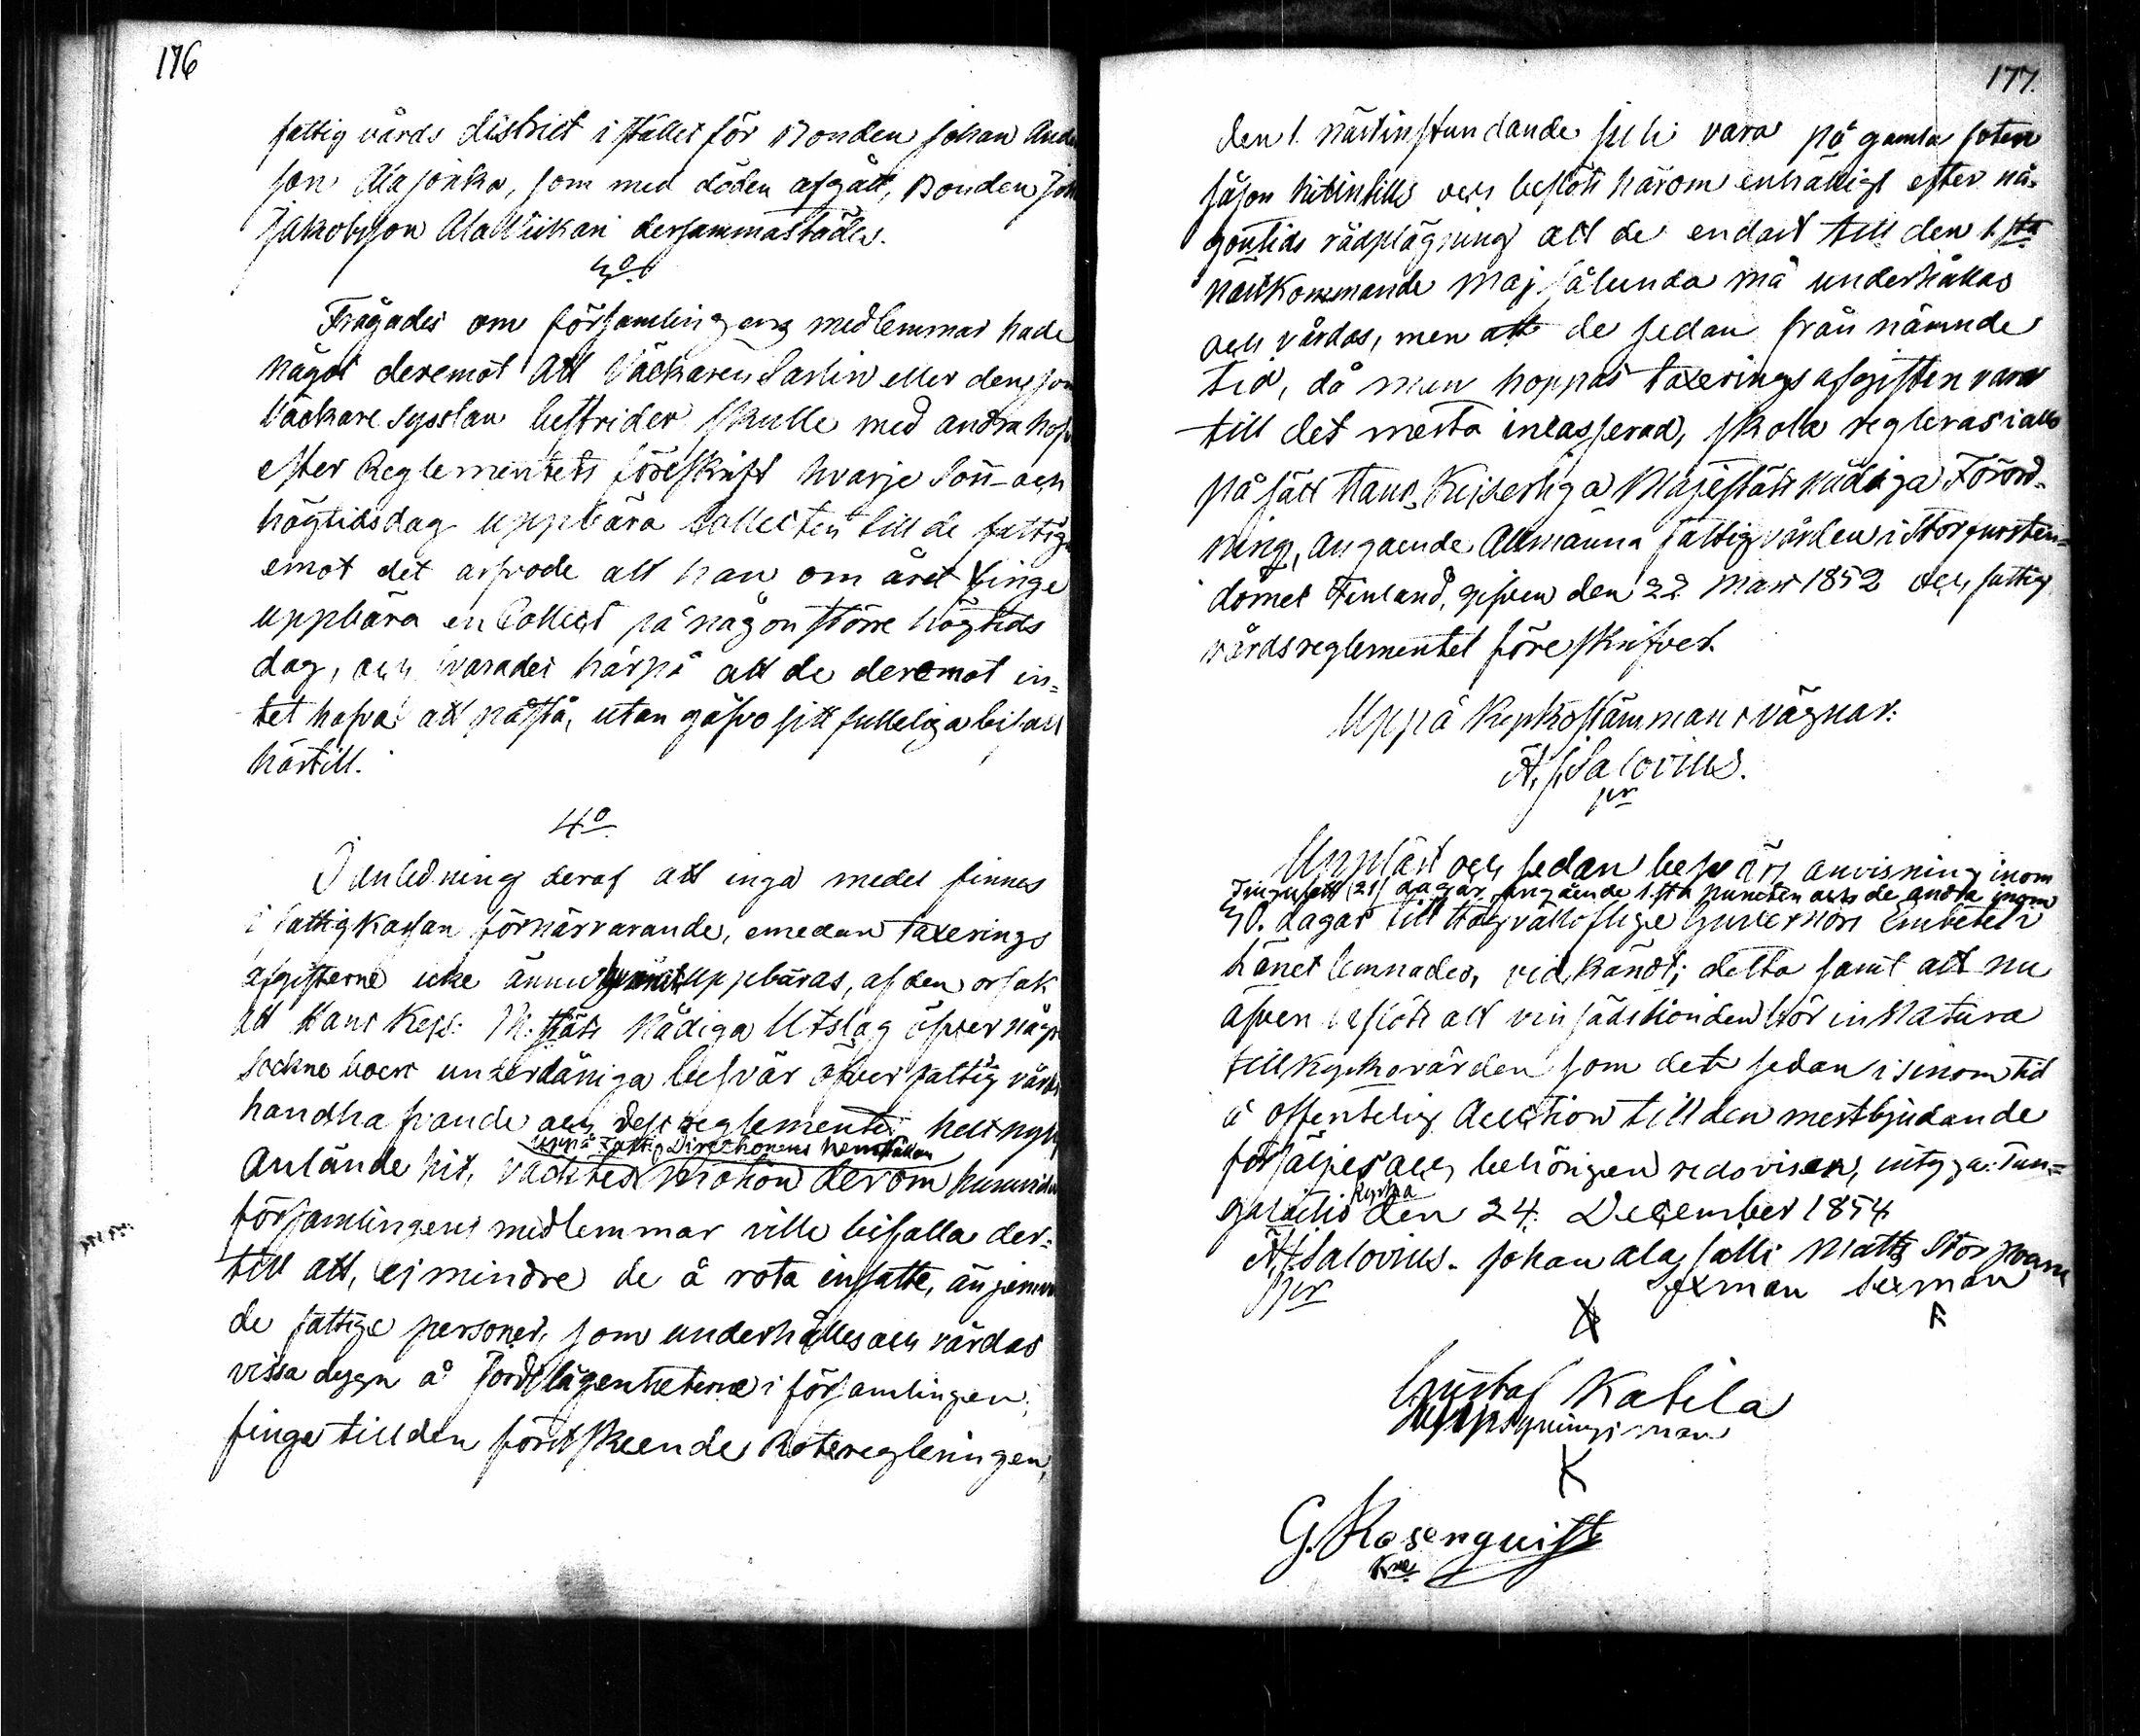 176
fattig vårds district i stället för Bonden Johan Ande
son Alajouko, som med döden afgått, Bonden Joh
Jakobsson Ala Wiikari dersammastädes.
3o
Frågades om församlingens medlemmar hade
något deremot att Väckaren Sarlin eller den som
Väckare sysslan bestrider skulle med andra
efter Reglementets föreskrift hvarje Sön- och
högtidsdag uppbära Collecten till de fattiga
emot det arfvode att han om året finge
uppbära en Collect på någon större högtids
dag, och svarades härpå att de deremot in=
tet hafva att påstå, utan gåfvo sitt fulleliga bifall
härtill.
4o
I anledning deraf att inga medel finnes
i fattigkassan förnärvarande, emedan taxerings
afgifterne icke ännu uppbäras, af den orsak
att Hans Kejs: M:ställs Nådiga Utslag öfver någre
Sockne boers underdåniga besvär öfver fattig vårds
handhafvande och dess reglemente helt nyss
uppå Fattig Directionens hemställan
Anlände hit, väcktes motion derom huruvida
församlingens medlemmar ville bifalla der=
till att, ej mindre de å rota insatte, än jemväl
de fattige personer, som underhålles och vårdas
vissa dygn å Jordlägenheterne i församlingen,
finge till den först skeende Roteregleringen,
177.
den 1 nästinstundande Juli vara på gamla foten
såson hitintills och beslöts härom enhälligt efter nå-
gontids rådplägning att de endast till den 1sta
nästkommande Maj sålunda må underhållas
och vårdas, men att de sedan från nämnde
tid, då man hoppas taxeringsafgiften vara
till det mesta incasserad, skola regleras i allo
på sätt Hans Kejserliga Majestäts nådiga Förord-
ning, angaende Allmänna fattigvården i Storfursten=
dömet Finland, gifven den 22 Mars 1852 och fattig
vårdsreglementet föreskrifver.
Uppå Kyrkostämmans vägnar:
A. J. Salovius.
pr
Uppläst och sedan besvärs anvisning inom
Tjuguett (21) dagar angående 1sta puncten och de andra inom
30. dagar till Högvälloflige Guvernörs Embetet i
Länet lemnades, vidkändt; detta samt att nu
äfven beslöts att vinsädstionden bör in Natura
till Kyrkovärden som det sedan i sinom tid
å offentelig Auction till den mestbjudande
försäljes och behörigen redovisar, intyga: Tun=
galaitio Kyrka den 24. December 1854
A. J. Salovius. Johan ala Jalli Matts Stor
pr Sexman Sexman
Gustaf Katila
Uppsyningsman
G. Rosenquist